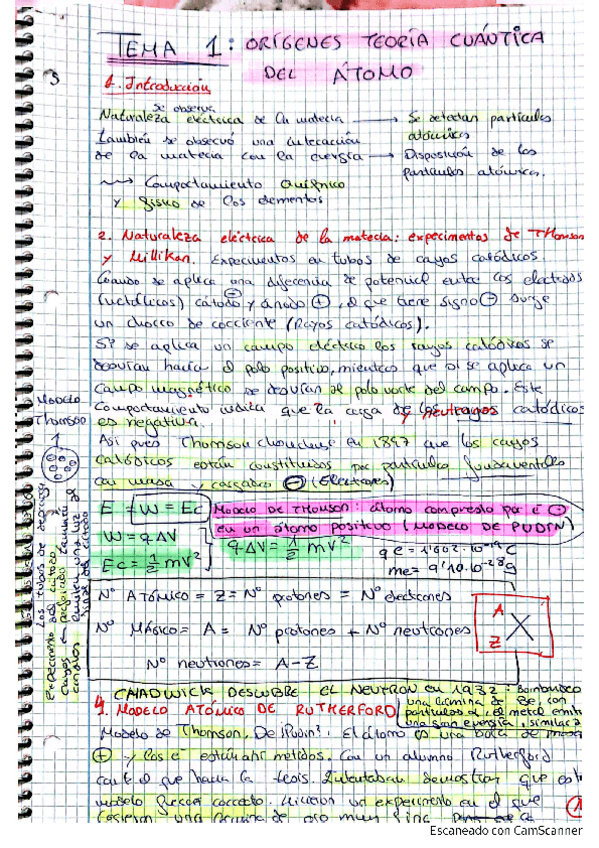 TEMA 1: ORÍGENES TEORÍA CUÁNTICA
DEL ÁTOMO
1. Introducción
se observa
Naturaleza eléctrica de la materia → Se detectan partículas
atómicas
También se observó una interacción
de la materia con la energía → Disposición de las
partículas atómicas.
Comportamiento químico
y físico de los elementos
2. Naturaleza eléctrica de la materia: experimentos de THomson
y Millikan. Experimentos en tubos de rayos catódicos.
Cuando se aplica una diferencia de potencial entre los electrodos
(metálicos) cátodo ⊖ y ánodo ⊕, el que tiene signo ⊖ surge
un chorro de corriente (Rayos catódicos).
Si se aplica un campo eléctrico los rayos catódicos se
desvían hacia el polo positivo, mientras que si se aplica un
campo magnético se desvían al polo norte del campo. Este
comportamiento indica que la carga de los rayos catódicos
es negativa.
Así pues Thomson concluye en 1897 que los rayos
catódicos están constituidos por partículas fundamentales
con masa y cargados ⊖ (Electrones)
Modelo
Thomson
E = W = Ec
W = q·ΔV
Ec = 1/2 mV²
Modelo de THOMSON: átomo compuesto por e⊖
en un átomo positivo (MODELO DE PUDIN)
q·ΔV = 1/2 mV²
qe = 1'602·10⁻¹⁹ C
me = 9'10·10⁻²⁸ g
Nº Atómico = Z = Nº protones = Nº electrones
Nº Másico = A = Nº protones + Nº neutrones
Nº neutrones = A-Z
A
X
Z
CHADWICK DESCUBRE EL NEUTRON en 1932: Bombardeo
una lámina de Be con
partículas α, el metal emite
una gran energía, similar a
4. MODELO ATÓMICO DE RUTHERFORD
Modelo de Thomson. De Pudin. El átomo es una bola de masa
⊕ y los e⁻ están ahí metidos. Con un alumno Rutherford
con el que hacía la tesis. Intentaban demostrar que este
modelo fuera correcto. Hicieron un experimento en el que
una lámina de oro muy fina
Escaneado con CamScanner